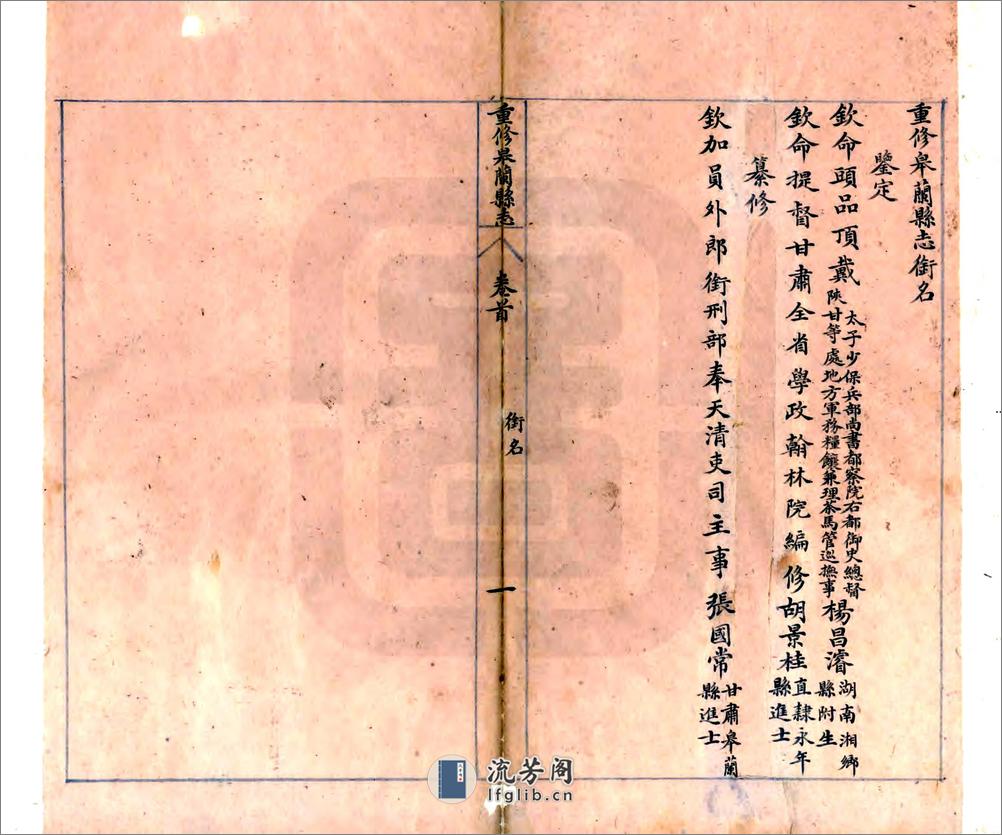 重修皋蘭縣志銜名
鑒定
欽命頭品頂戴太子少保兵部尚書都察院右都御史總督陝甘等處地方軍務糧饟兼理茶馬管巡撫事楊昌濬湖南湘鄉縣附生
欽命提督甘肅全省學政翰林院編修胡景桂直隸永年縣進士
纂修
欽加員外郎銜刑部奉天清吏司主事張國常甘肅皋蘭縣進士
重修皋蘭縣志
卷首
銜名
一
流芳阁
lfglib.cn